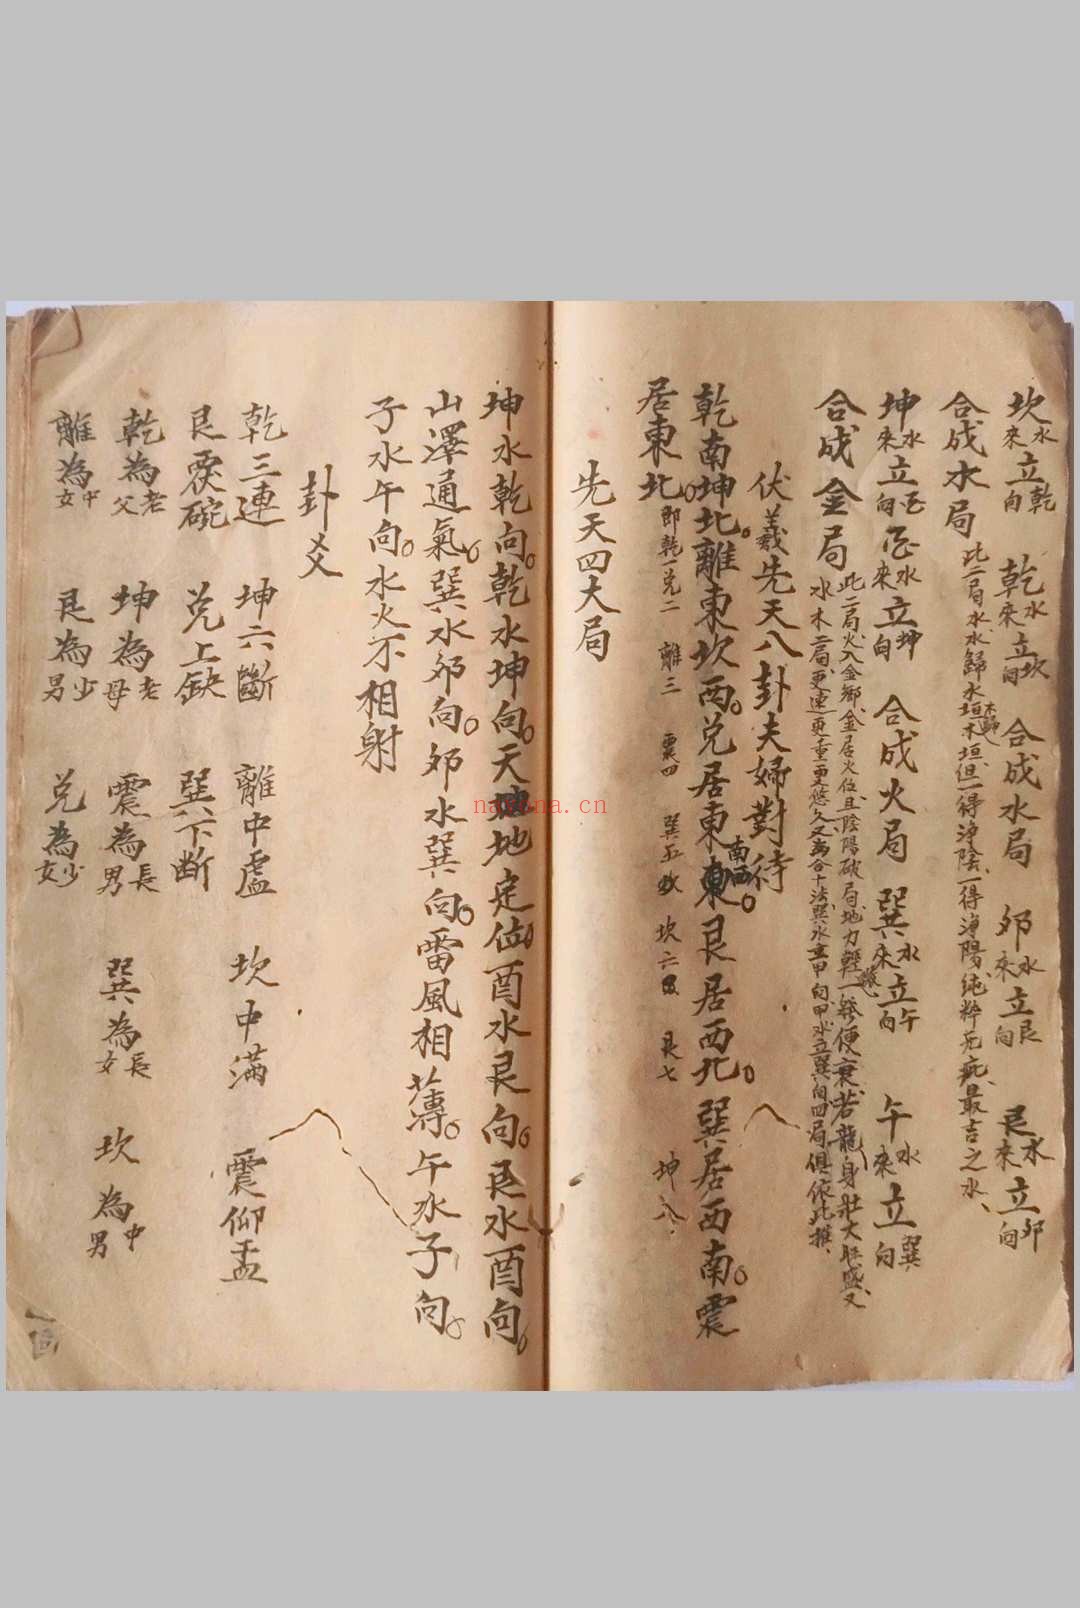 坎水來立乾向　乾水來立坎向　合成水局　夘水來立艮向　艮水來立夘向
合成水局　此二局水水歸水垣木歸木垣但一得淨陰一得淨陽純粹無疵最吉之水
坤水來立向　水來立坤向　合成火局　巽水來立午向　午水來立巽向
合成金局　此二局火入金鄉金居火位且陰陽破局地力輕一發便衰若龍身壯大旺盛又
水木二局更速更重更悠久又為合十法巽水立甲向甲水立巽向四局俱依此推
伏羲先天八卦夫婦對待
乾南坤北離東坎西兌居東南東艮居西北巽居西南震
居東北即乾一兌二　離三　震四　巽五　坎六　艮七　坤八
先天四大局
坤水乾向乾水坤向天地定位酉水艮向艮水酉向
山澤通氣巽水夘向夘水巽向雷風相薄午水子向
子水午向水火不相射
卦爻
乾三連　坤六斷　離中虛　坎中滿　震仰盂
艮覆碗　兌上缺　巽下斷
乾為老父　坤為老母　震為長男　巽為長女　坎為中男
離為中女　艮為少男　兌為少女
nayona.cn